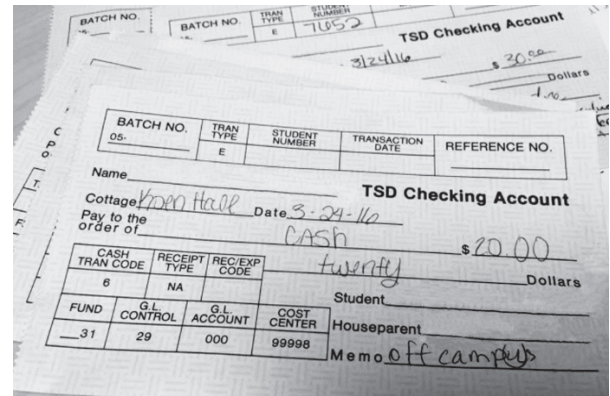 BATCH NO.
BATCH NO. TRAN TYPE STUDENT NUMBER
E 7652
TSD Checking Account
3/24/16 $ 30.00
Dollars
BATCH NO. TRAN TYPE STUDENT NUMBER TRANSACTION DATE REFERENCE NO.
05- E
Name
TSD Checking Account
Cottage Koen Hall Date 3-24-16
Pay to the
order of CASH $ 20.00
twenty Dollars
CASH TRAN CODE RECEIPT TYPE REC/EXP CODE
6 NA
Student
FUND G.L. CONTROL G.L. ACCOUNT COST CENTER
31 29 000 99998
Houseparent
Memo off campus